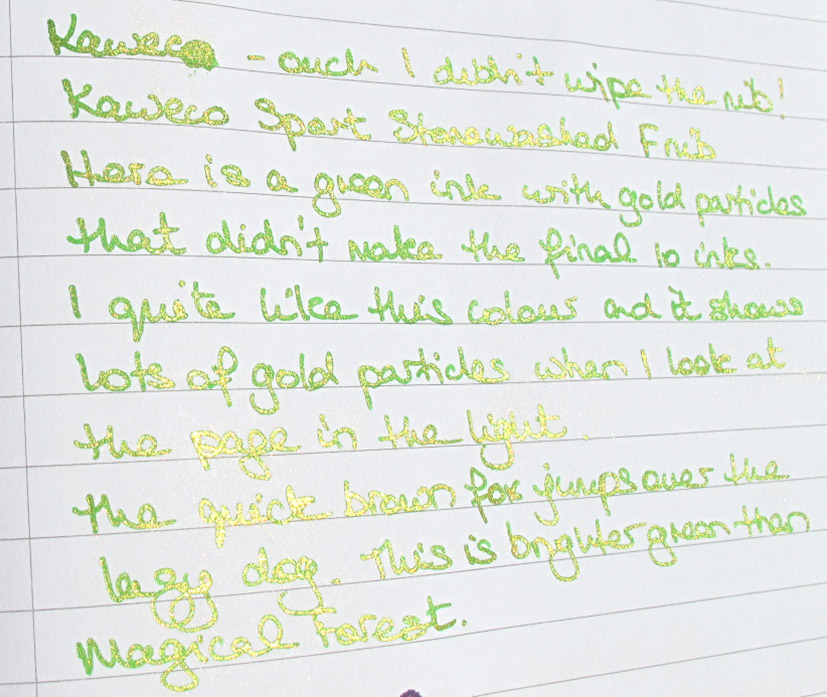 Kaweco - ouch I didn't wipe the nib!
Kaweco Sport Stonewashed F nib
Here is a green ink with gold particles
that didn't make the final 10 inks.
I quite like this colour and it shows
lots of gold particles when I look at
the page in the light.
the quick brown fox jumps over the
lazy dog. This is brighter green than
Magical Forest.